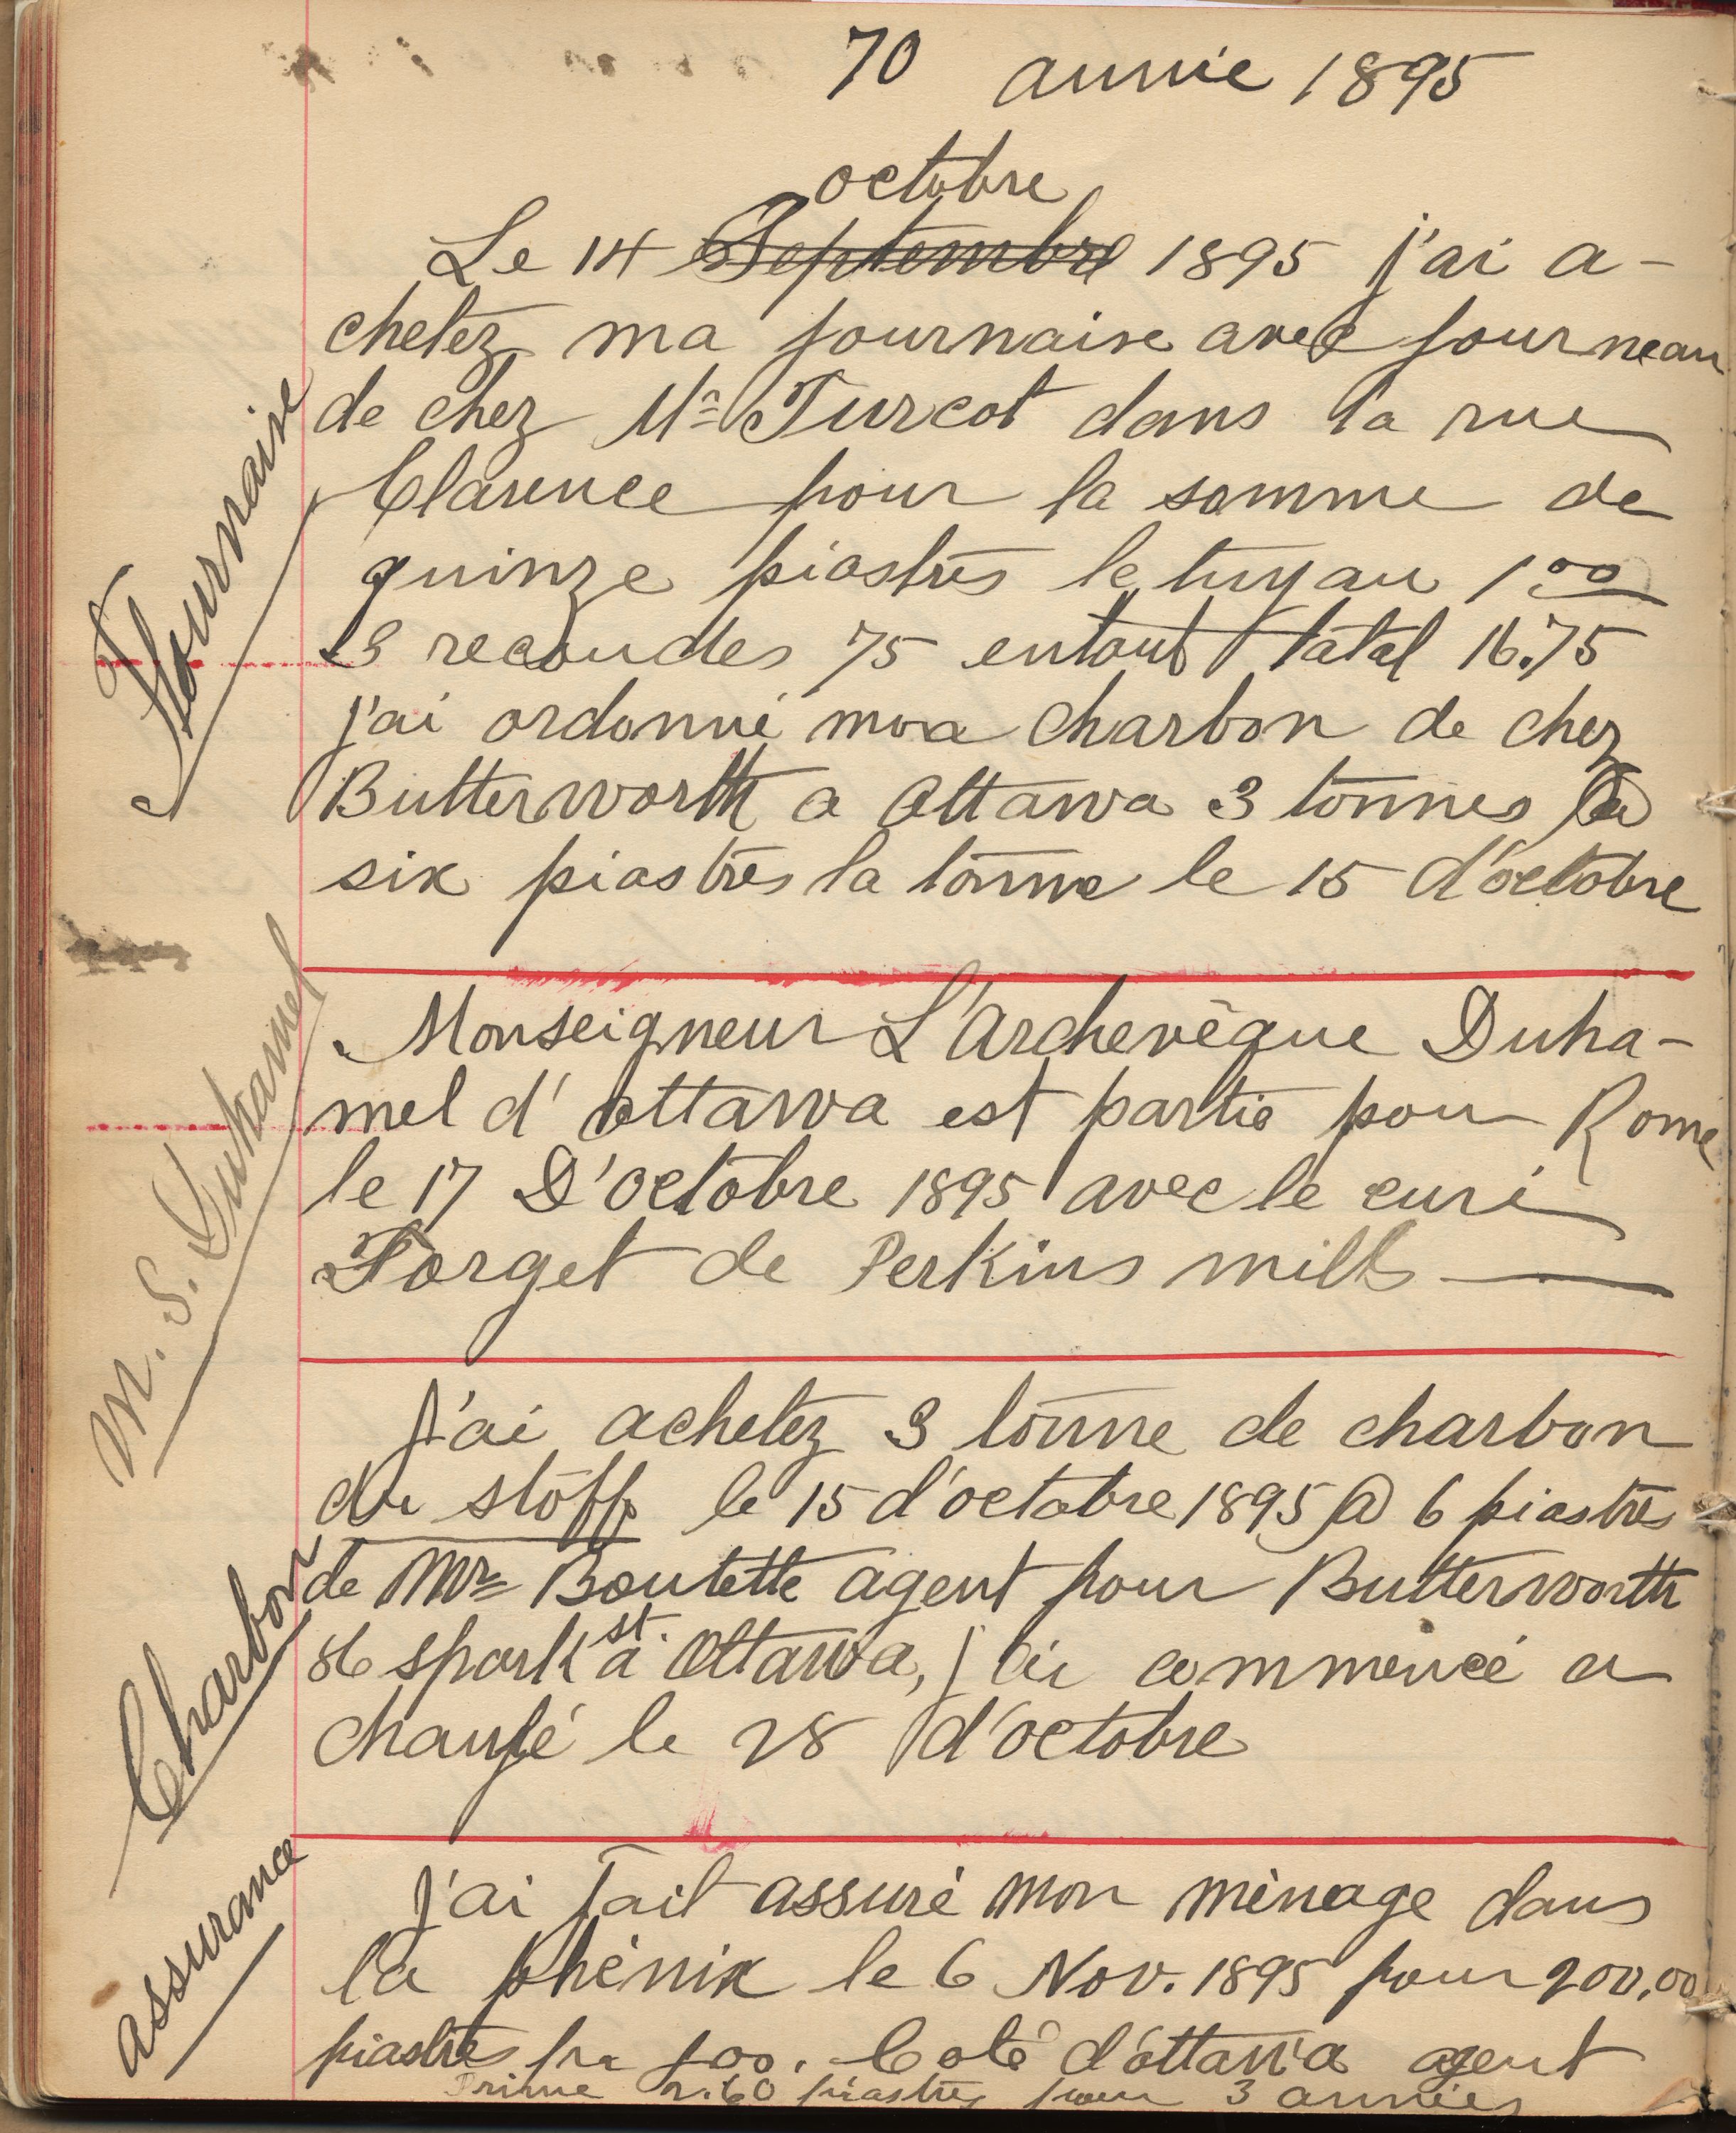 70 année 1895
octobre
Le 14 Septembre 1895 j'ai a-
chetez ma fournaise avec fourneau
de chez Mr Turcot dans la rue
Clarence pour la somme de
quinze piastres le tuyau 1.00
3 recoudes 75 entout total 16.75
j'ai ordonné mon charbon de chez
Butterworth a Ottawa 3 tonnes @
six piastres la tonne le 15 d'octobre
Fournaise
Monseigneur L'Archevêque Duha-
mel d'ottawa est partie pour Rome
le 17 D'octobre 1895 avec le curé
Forget de Perkins mills
M. S. Duhamel
J'ai achetez 3 tonne de charbon
du stoff le 15 d'octobre 1895 @ 6 piastres
de Mr Boutette agent pour Butterworth
86 spark st. a Ottawa, j'ai commencé a
chaufé le 28 d'octobre
Charbon
J'ai fait assuré mon ménage dans
la phénix le 6 Nov. 1895 pour 200,00
piastres par Coté d'ottawa agent
Prime 2.60 piastres pour 3 années
assurance